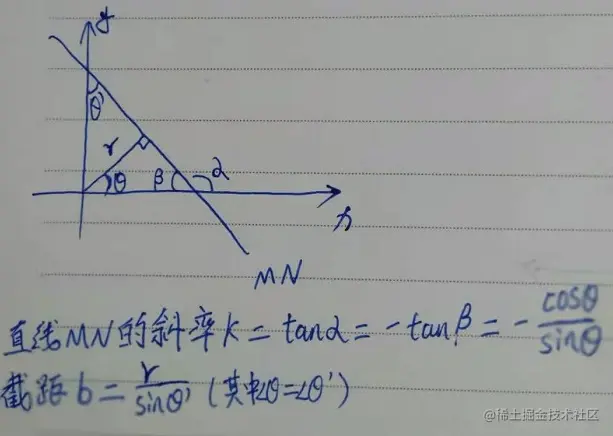 y
θ'
r
θ
β
α
x
MN
直线MN的斜率k=tanα=-tanβ=-cosθ/sinθ
截距b=r/sinθ' (其中∠θ=∠θ')
@稀土掘金技术社区